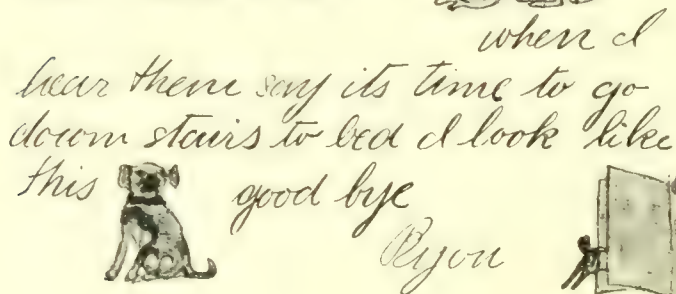 when I
hear them say its time to go
down stairs to bed I look like
this good bye
Ryou